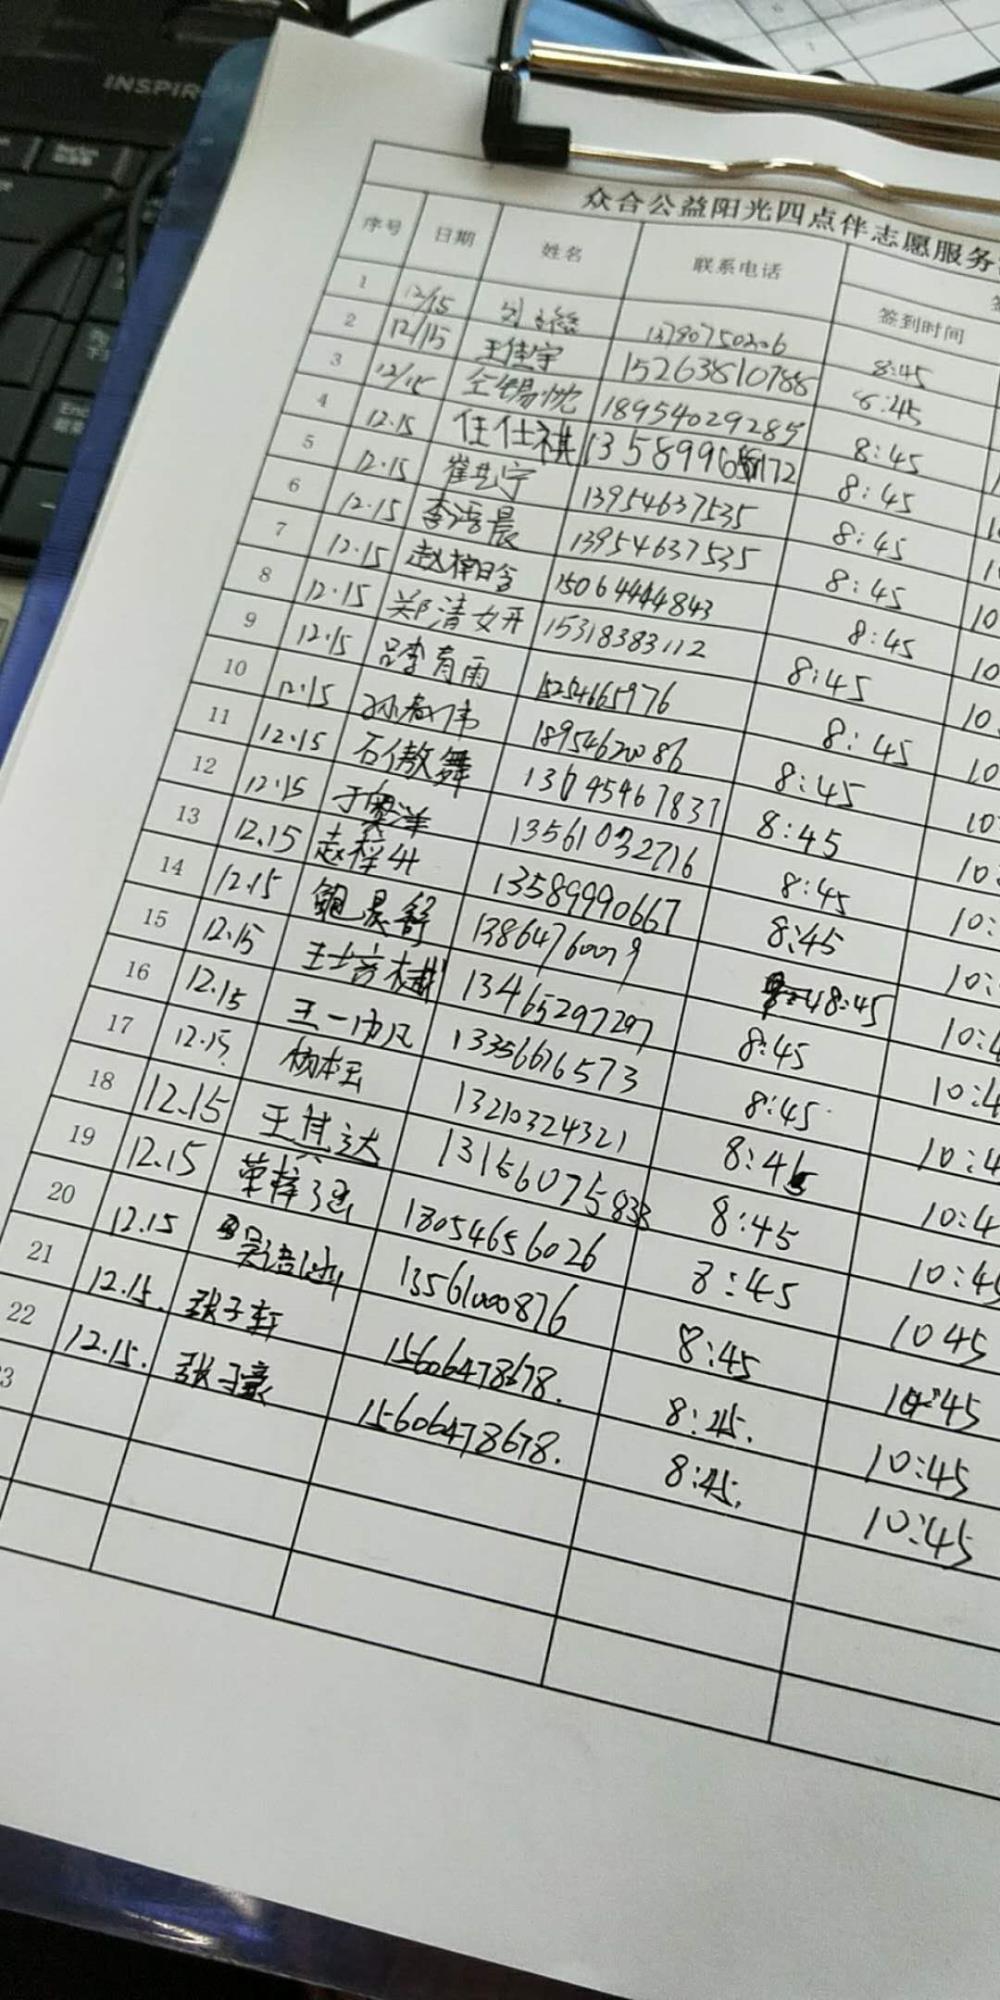 INSPIR
众合公益阳光四点伴志愿服务
序号 日期 姓名 联系电话 签到时间
1 12/15 刘 13780750206 8:45
2 12/15 王佳宇 15263810788 8:45
3 12/15 仝锡忱 18954029285 8:45
4 12.15 任仕祺 135899 172 8:45
5 12.15 崔艺宁 13954637535 8:45
6 12.15 李浯晨 13954637535 8:45 10
7 12.15 赵梓晗 15064444843 8:45 10
8 12.15 郑清妍 15318383112 8:45 10
9 12.15 吕李育雨 15254665976 8:45 10
10 12.15 孙 伟 18954620086 8:45 10
11 12.15 石傲舞 13645467837 8:45 10:
12 12.15 于奥洋 13561032716 8:45 10:
13 12.15 赵梓卅 13589990667 8:45 10:
14 12.15 鲍晨舒 13864760079 8:45 10:4
15 12.15 王士 越 13465297297 8:45 10:4
16 12.15 王一帆 13356676573 8:45 10:4
17 12.15 杨本玉 13210324321 8:45 10:4
18 12.15 王其达 1316607583 8:45 10:45
19 12.15 荣梓 18054656026 8:45 1045
20 12.15 吴语 13561000876 8:45 10:45
21 12.15. 张子轩 15606478678. 8:45. 10:45
22 12.15. 张子豪 15606478678. 8:45. 10:45
3